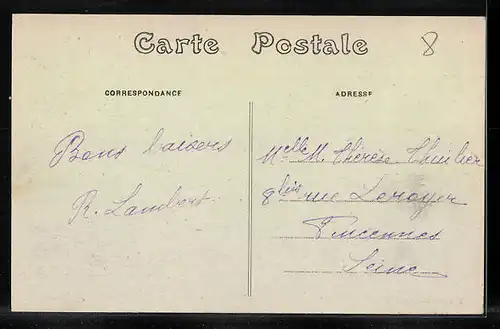 Carte Postale
8
CORRESPONDANCE
ADRESSE
Bons baisers
R. Lambert
Melle M. Thérèse Thuilier
8bis rue Leroyer
Vincennes
Seine